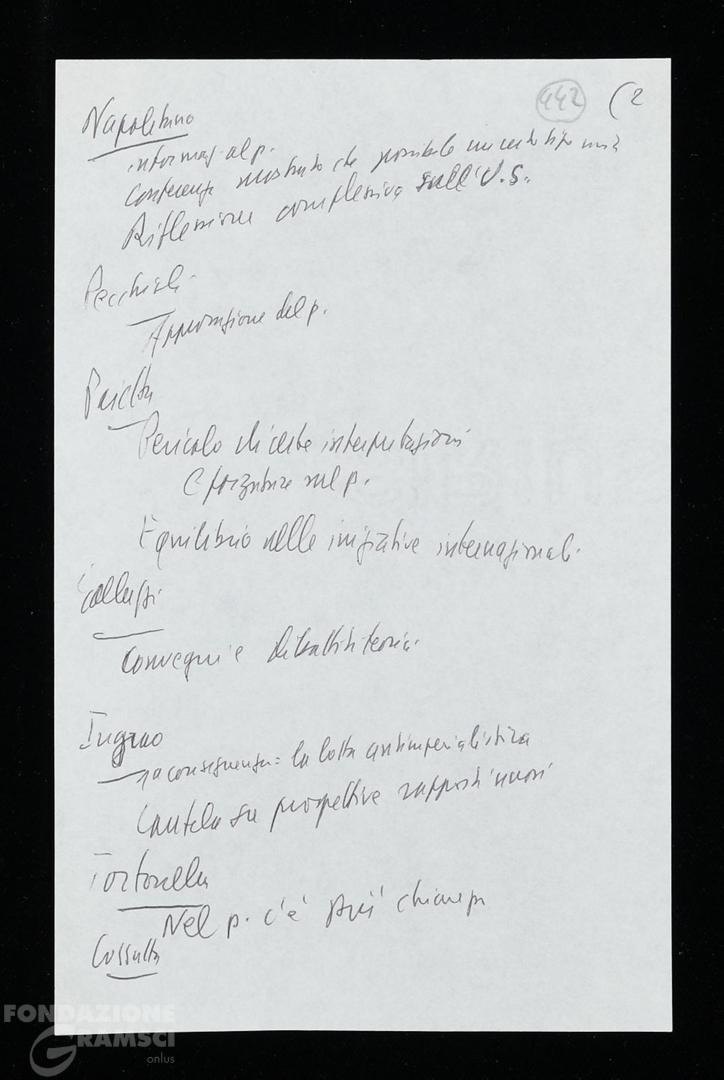 442 (2
Napolitano
informaz. al p.
Conferenza mostrato che possibile un certo tipo unità
Riflessione complessiva sull'U.S.
Pecchioli
Approvazione del p.
Pajetta
Pericolo di certe interpretazioni
e forzature sul p.
Equilibrio nelle iniziative internazionali.
Galluzzi
Convegni e dibattiti teorici.
Ingrao
1a conseguenza: la lotta antimperialistica
Cautela su prospettive rapporti nuovi
Tortorella
Nel p. c'è più chiarezza
Cossutta
FONDAZIONE
GRAMSCI
onlus